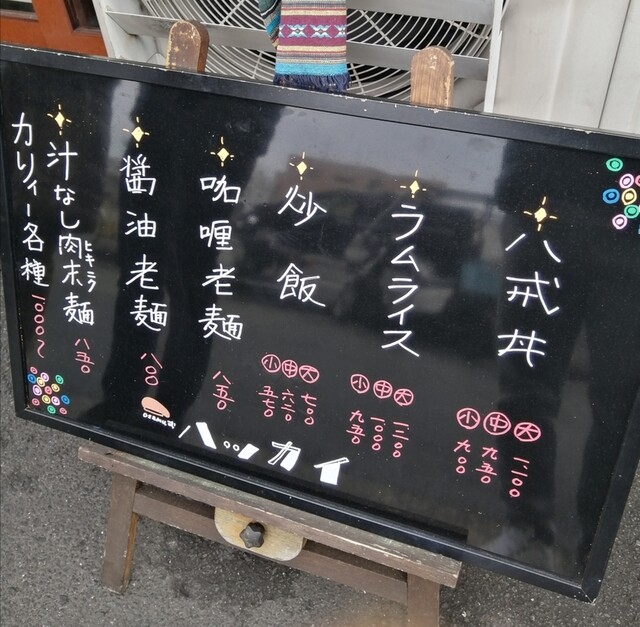 八戒丼
大 一、〇〇
中 九五〇
小 九〇〇
ラムライス
大 一二〇〇
中 一〇〇〇
小 九五〇
炒飯
大 七〇〇
中 六二〇
小 五七〇
咖喱老麺
八五〇
醤油老麺
八〇〇
汁なし肉ホ麺
ヒキニク
八五〇
カリィー各種
一〇〇〇〜
ハッカイ